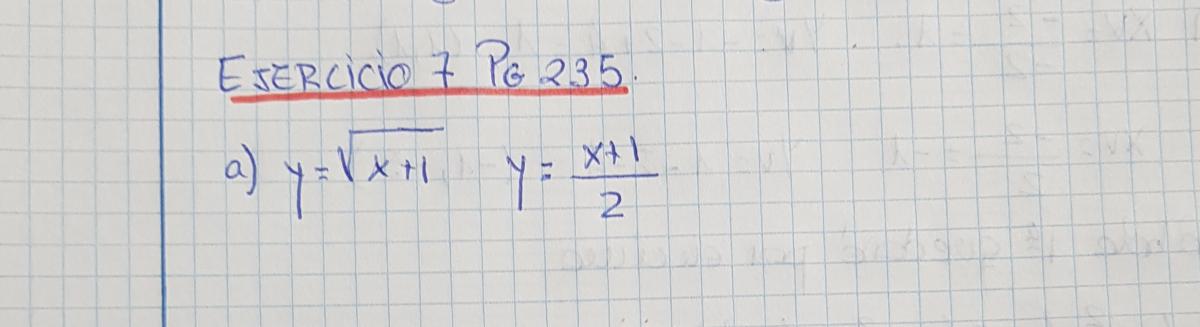 EJERCICIO 7 PG 235.
a) y=√x+1 y= x+1/2